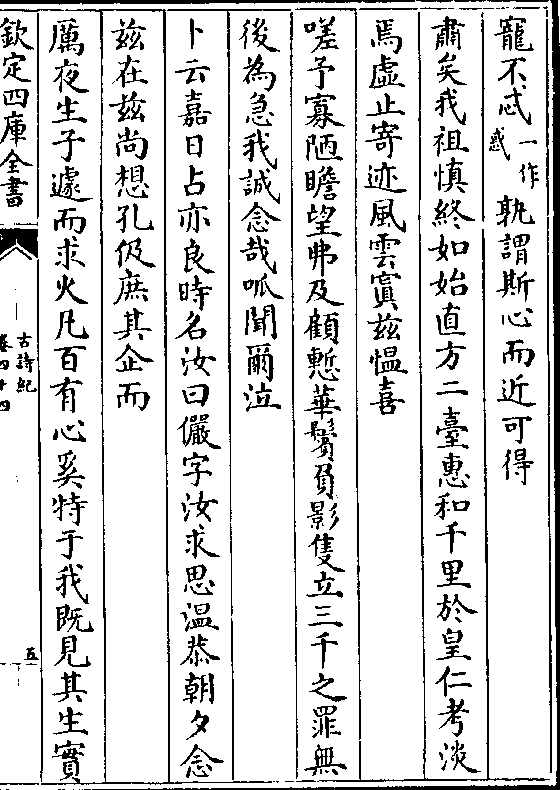 寵不忒一作惑孰謂斯心而近可得
肅矣我祖慎終如始直方二臺惠和千里於皇仁考淡
焉虛止寄迹風雲寘兹愠喜
嗟予寡陋瞻望弗及顧慙華鬢負影隻立三千之罪無
後為急我誠念哉呱聞爾泣
卜云嘉日占亦良時名汝曰儼字汝求思温恭朝夕念
兹在兹尚想孔伋庶其企而
厲夜生子遽而求火凡百有心奚特于我既見其生實
欽定四庫全書
古詩紀
卷四十四
五